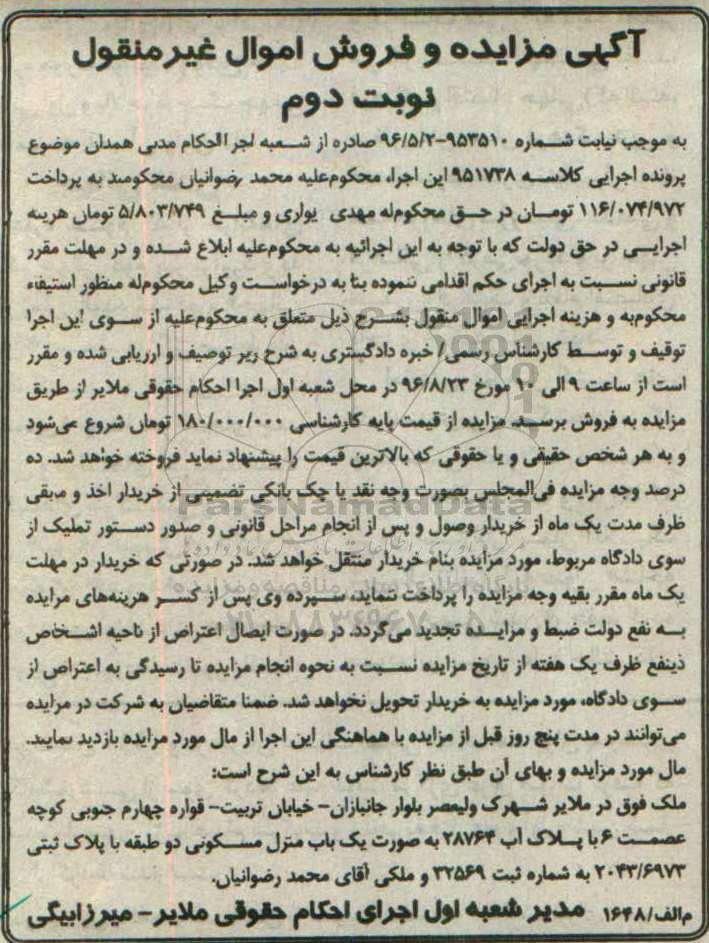 آگهی مزایده و فروش اموال غیرمنقول
نوبت دوم
به موجب نیابت شماره ۹۵۳۵۱۰-۹۶/۵/۲ صادره از شعبه اجرا احکام مدنی همدان موضوع
پرونده اجرایی کلاسه ۹۵۱۷۳۸ این اجرا، محکوم‌علیه محمد رضوانیان محکومند به پرداخت
۱۱۶/۰۷۴/۹۷۲ تومان در حق محکوم‌له مهدی یواری و مبلغ ۵/۸۰۳/۷۴۹ تومان هزینه
اجرایی در حق دولت که با توجه به این اجرائیه به محکوم‌علیه ابلاغ شده و در مهلت مقرر
قانونی نسبت به اجرای حکم اقدامی ننموده بنا به درخواست وکیل محکوم‌له منظور استیفاء
محکوم‌به و هزینه اجرایی اموال منقول بشرح ذیل متعلق به محکوم‌علیه از سوی این اجرا
توقیف و توسط کارشناس رسمی/ خبره دادگستری به شرح زیر توصیف و ارزیابی شده و مقرر
است از ساعت ۹ الی ۱۰ مورخ ۹۶/۸/۲۳ در محل شعبه اول اجرا احکام حقوقی ملایر از طریق
مزایده به فروش برسد. مزایده از قیمت پایه کارشناسی ۱۸۰/۰۰۰/۰۰۰ تومان شروع می‌شود
و به هر شخص حقیقی و یا حقوقی که بالاترین قیمت را پیشنهاد نماید فروخته خواهد شد. ده
درصد وجه مزایده فی‌المجلس بصورت وجه نقد یا چک بانکی تضمینی از خریدار اخذ و مبقی
ظرف مدت یک ماه از خریدار وصول و پس از انجام مراحل قانونی و صدور دستور تملیک از
سوی دادگاه مربوط، مورد مزایده بنام خریدار منتقل خواهد شد. در صورتی که خریدار در مهلت
یک ماه مقرر بقیه وجه مزایده را پرداخت ننماید، سپرده وی پس از کسر هزینه‌های مزایده
به نفع دولت ضبط و مزایده تجدید می‌گردد. در صورت ایصال اعتراض از ناحیه اشخاص
ذینفع ظرف یک هفته از تاریخ مزایده نسبت به نحوه انجام مزایده تا رسیدگی به اعتراض از
سوی دادگاه، مورد مزایده به خریدار تحویل نخواهد شد. ضمنا متقاضیان به شرکت در مزایده
می‌توانند در مدت پنج روز قبل از مزایده با هماهنگی این اجرا از مال مورد مزایده بازدید نمایند.
مال مورد مزایده و بهای آن طبق نظر کارشناس به این شرح است:
ملک فوق در ملایر شهرک ولیعصر بلوار جانبازان- خیابان تربیت- قواره چهارم جنوبی کوچه
عصمت ۶ با پلاک آب ۲۸۷۶۴ به صورت یک باب منزل مسکونی دو طبقه با پلاک ثبتی
۲۰۴۳/۶۹۷۳ به شماره ثبت ۳۲۵۶۹ و ملکی آقای محمد رضوانیان.
م‌الف/۱۶۴۸ مدیر شعبه اول اجرای احکام حقوقی ملایر- میرزابیگی
ParsNamadData